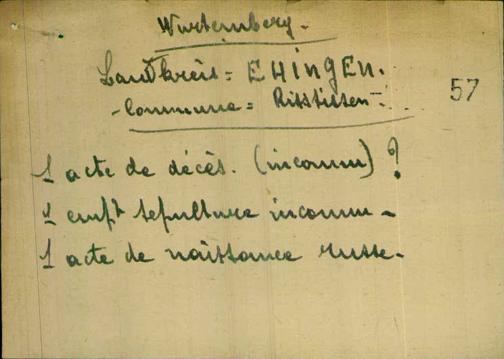 Wurtemberg.
Landkreis = EHINGEN.
- Commune = Risstissen -
57
1 acte de décès. (inconnu) ?
1 empt sepulture inconnu -
1 acte de naissance russe.